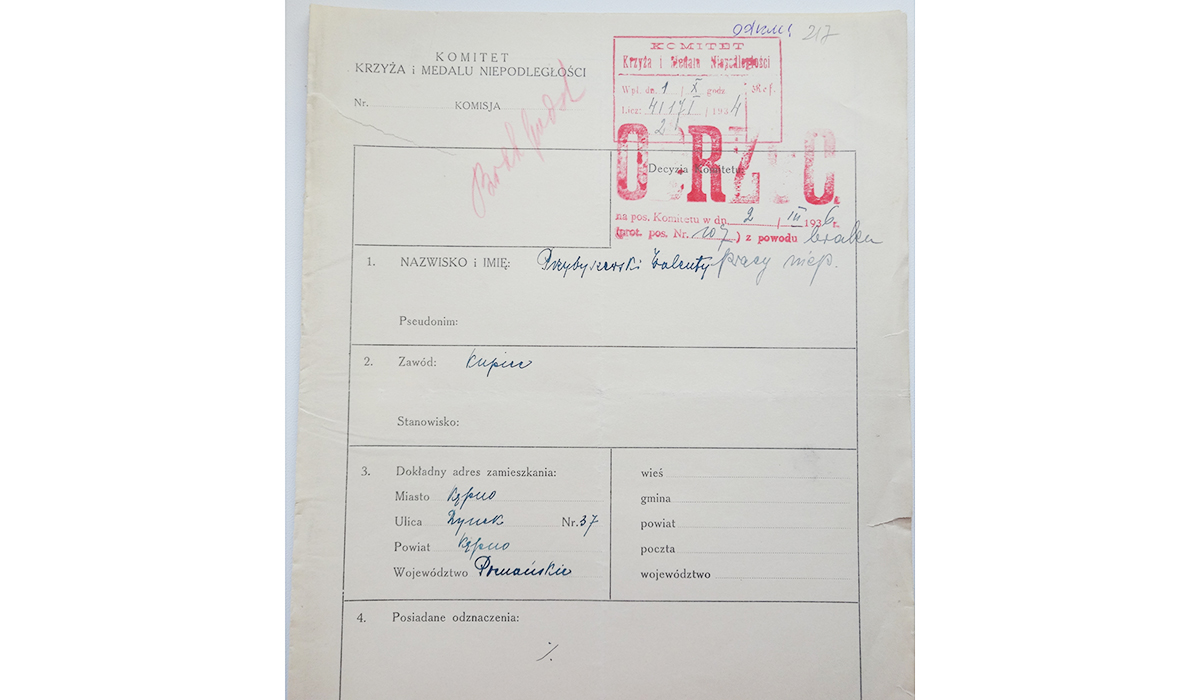 217
KOMITET
KRZYŻA i MEDALU NIEPODLEGŁOŚCI
Nr. KOMISJA
KOMITET
Krzyża i Medalu Niepodległości
Wpł. dn. 1 / X godz. Ref.
Licz: 41171 / 1934
2
Decyzja Komitetu:
na pos. Komitetu w dn. 2 / III 1936 r.
(prot. pos. Nr. 107) z powodu braku
pracy niep.
1. NAZWISKO i IMIĘ: Przybyszewski Walenty
Pseudonim:
2. Zawód: Kupiec
Stanowisko:
3. Dokładny adres zamieszkania:
Miasto Kępno
Ulica Rynek Nr. 37
Powiat Kępno
Województwo Poznańskie
wieś
gmina
powiat
poczta
województwo
4. Posiadane odznaczenia:
./.